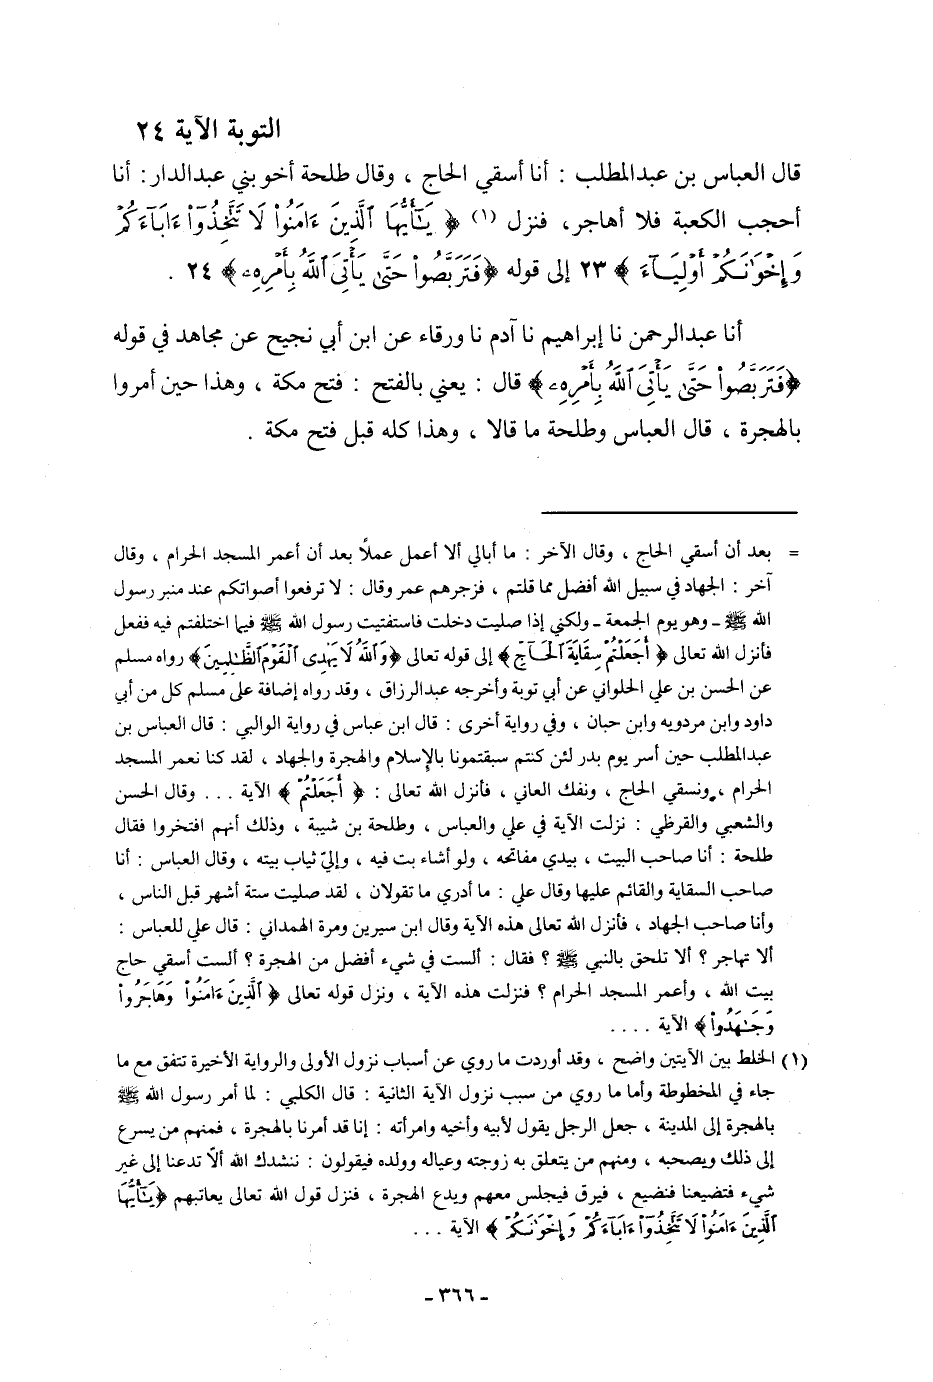 التوبة الآية ٢٤
قال العباس بن عبدالمطلب : أنا أسقي الحاج ، وقال طلحة أخو بني عبدالدار : أنا
أحجب الكعبة فلا أهاجر، فنزل (١) ﴿ يَـٰٓأَيُّهَا ٱلَّذِينَ ءَامَنُوا۟ لَا تَتَّخِذُوٓا۟ ءَابَآءَكُمْ
وَإِخْوَٰنَكُمْ أَوْلِيَآءَ ﴾ ٢٣ إلى قوله ﴿فَتَرَبَّصُوا۟ حَتَّىٰ يَأْتِىَ ٱللَّهُ بِأَمْرِهِۦ﴾ ٢٤ .
أنا عبدالرحمن نا إبراهيم نا آدم نا ورقاء عن ابن أبي نجيح عن مجاهد في قوله
﴿فَتَرَبَّصُوا۟ حَتَّىٰ يَأْتِىَ ٱللَّهُ بِأَمْرِهِۦ﴾ قال : يعني بالفتح : فتح مكة ، وهذا حين أمروا
بالهجرة ، قال العباس وطلحة ما قالا ، وهذا كله قبل فتح مكة .
= بعد أن أسقي الحاج ، وقال الآخر : ما أبالي ألا أعمل عملاً بعد أن أعمر المسجد الحرام ، وقال
آخر : الجهاد في سبيل الله أفضل مما قلتم ، فزجرهم عمر وقال : لا ترفعوا أصواتكم عند منبر رسول
الله ﷺ ـ وهو يوم الجمعة ـ ولكني إذا صليت دخلت فاستفتيت رسول الله ﷺ فيما اختلفتم فيه ففعل
فأنزل الله تعالى ﴿ أَجَعَلْتُمْ سِقَايَةَ ٱلْحَآجِّ ﴾ إلى قوله تعالى ﴿وَٱللَّهُ لَا يَهْدِى ٱلْقَوْمَ ٱلظَّـٰلِمِينَ﴾ رواه مسلم
عن الحسن بن علي الحلواني عن أبي توبة وأخرجه عبدالرزاق ، وقد رواه إضافة على مسلم كل من أبي
داود وابن مردويه وابن حبان ، وفي رواية أخرى : قال ابن عباس في رواية الوالبي : قال العباس بن
عبدالمطلب حين أسر يوم بدر لئن كنتم سبقتمونا بالإسلام والهجرة والجهاد ، لقد كنا نعمر المسجد
الحرام ، ونسقي الحاج ، ونفك العاني ، فأنزل الله تعالى : ﴿ أَجَعَلْتُمْ ﴾ الآية ... وقال الحسن
والشعبي والقرظي : نزلت الآية في علي والعباس ، وطلحة بن شيبة ، وذلك أنهم افتخروا فقال
طلحة : أنا صاحب البيت ، بيدي مفاتحه ، ولو أشاء بت فيه ، وإليّ ثياب بيته ، وقال العباس : أنا
صاحب السقاية والقائم عليها وقال علي : ما أدري ما تقولان ، لقد صليت ستة أشهر قبل الناس ،
وأنا صاحب الجهاد ، فأنزل الله تعالى هذه الآية وقال ابن سيرين ومرة الهمداني : قال علي للعباس :
ألا تهاجر ؟ ألا تلحق بالنبي ﷺ ؟ فقال : ألست في شيء أفضل من الهجرة ؟ ألست أسقي حاج
بيت الله ، وأعمر المسجد الحرام ؟ فنزلت هذه الآية ، ونزل قوله تعالى ﴿ ٱلَّذِينَ ءَامَنُوا۟ وَهَاجَرُوا۟
وَجَـٰهَدُوا۟ ﴾ الآية ....
(١) الخلط بين الآيتين واضح ، وقد أوردت ما روي عن أسباب نزول الأولى والرواية الأخيرة تتفق مع ما
جاء في المخطوطة وأما ما روي من سبب نزول الآية الثانية : قال الكلبي : لما أمر رسول الله ﷺ
بالهجرة إلى المدينة ، جعل الرجل يقول لأبيه وأخيه وامرأته : إنا قد أمرنا بالهجرة ، فمنهم من يسرع
إلى ذلك ويصحبه ، ومنهم من يتعلق به زوجته وعياله وولده فيقولون : ننشدك الله ألاّ تدعنا إلى غير
شيء فتضيعنا فنضيع ، فيرق فيجلس معهم ويدع الهجرة ، فنزل قول الله تعالى يعاتبهم ﴿يَـٰٓأَيُّهَا
ٱلَّذِينَ ءَامَنُوا۟ لَا تَتَّخِذُوٓا۟ ءَابَآءَكُمْ وَإِخْوَٰنَكُمْ ﴾ الآية ...
- ٣٦٦ -